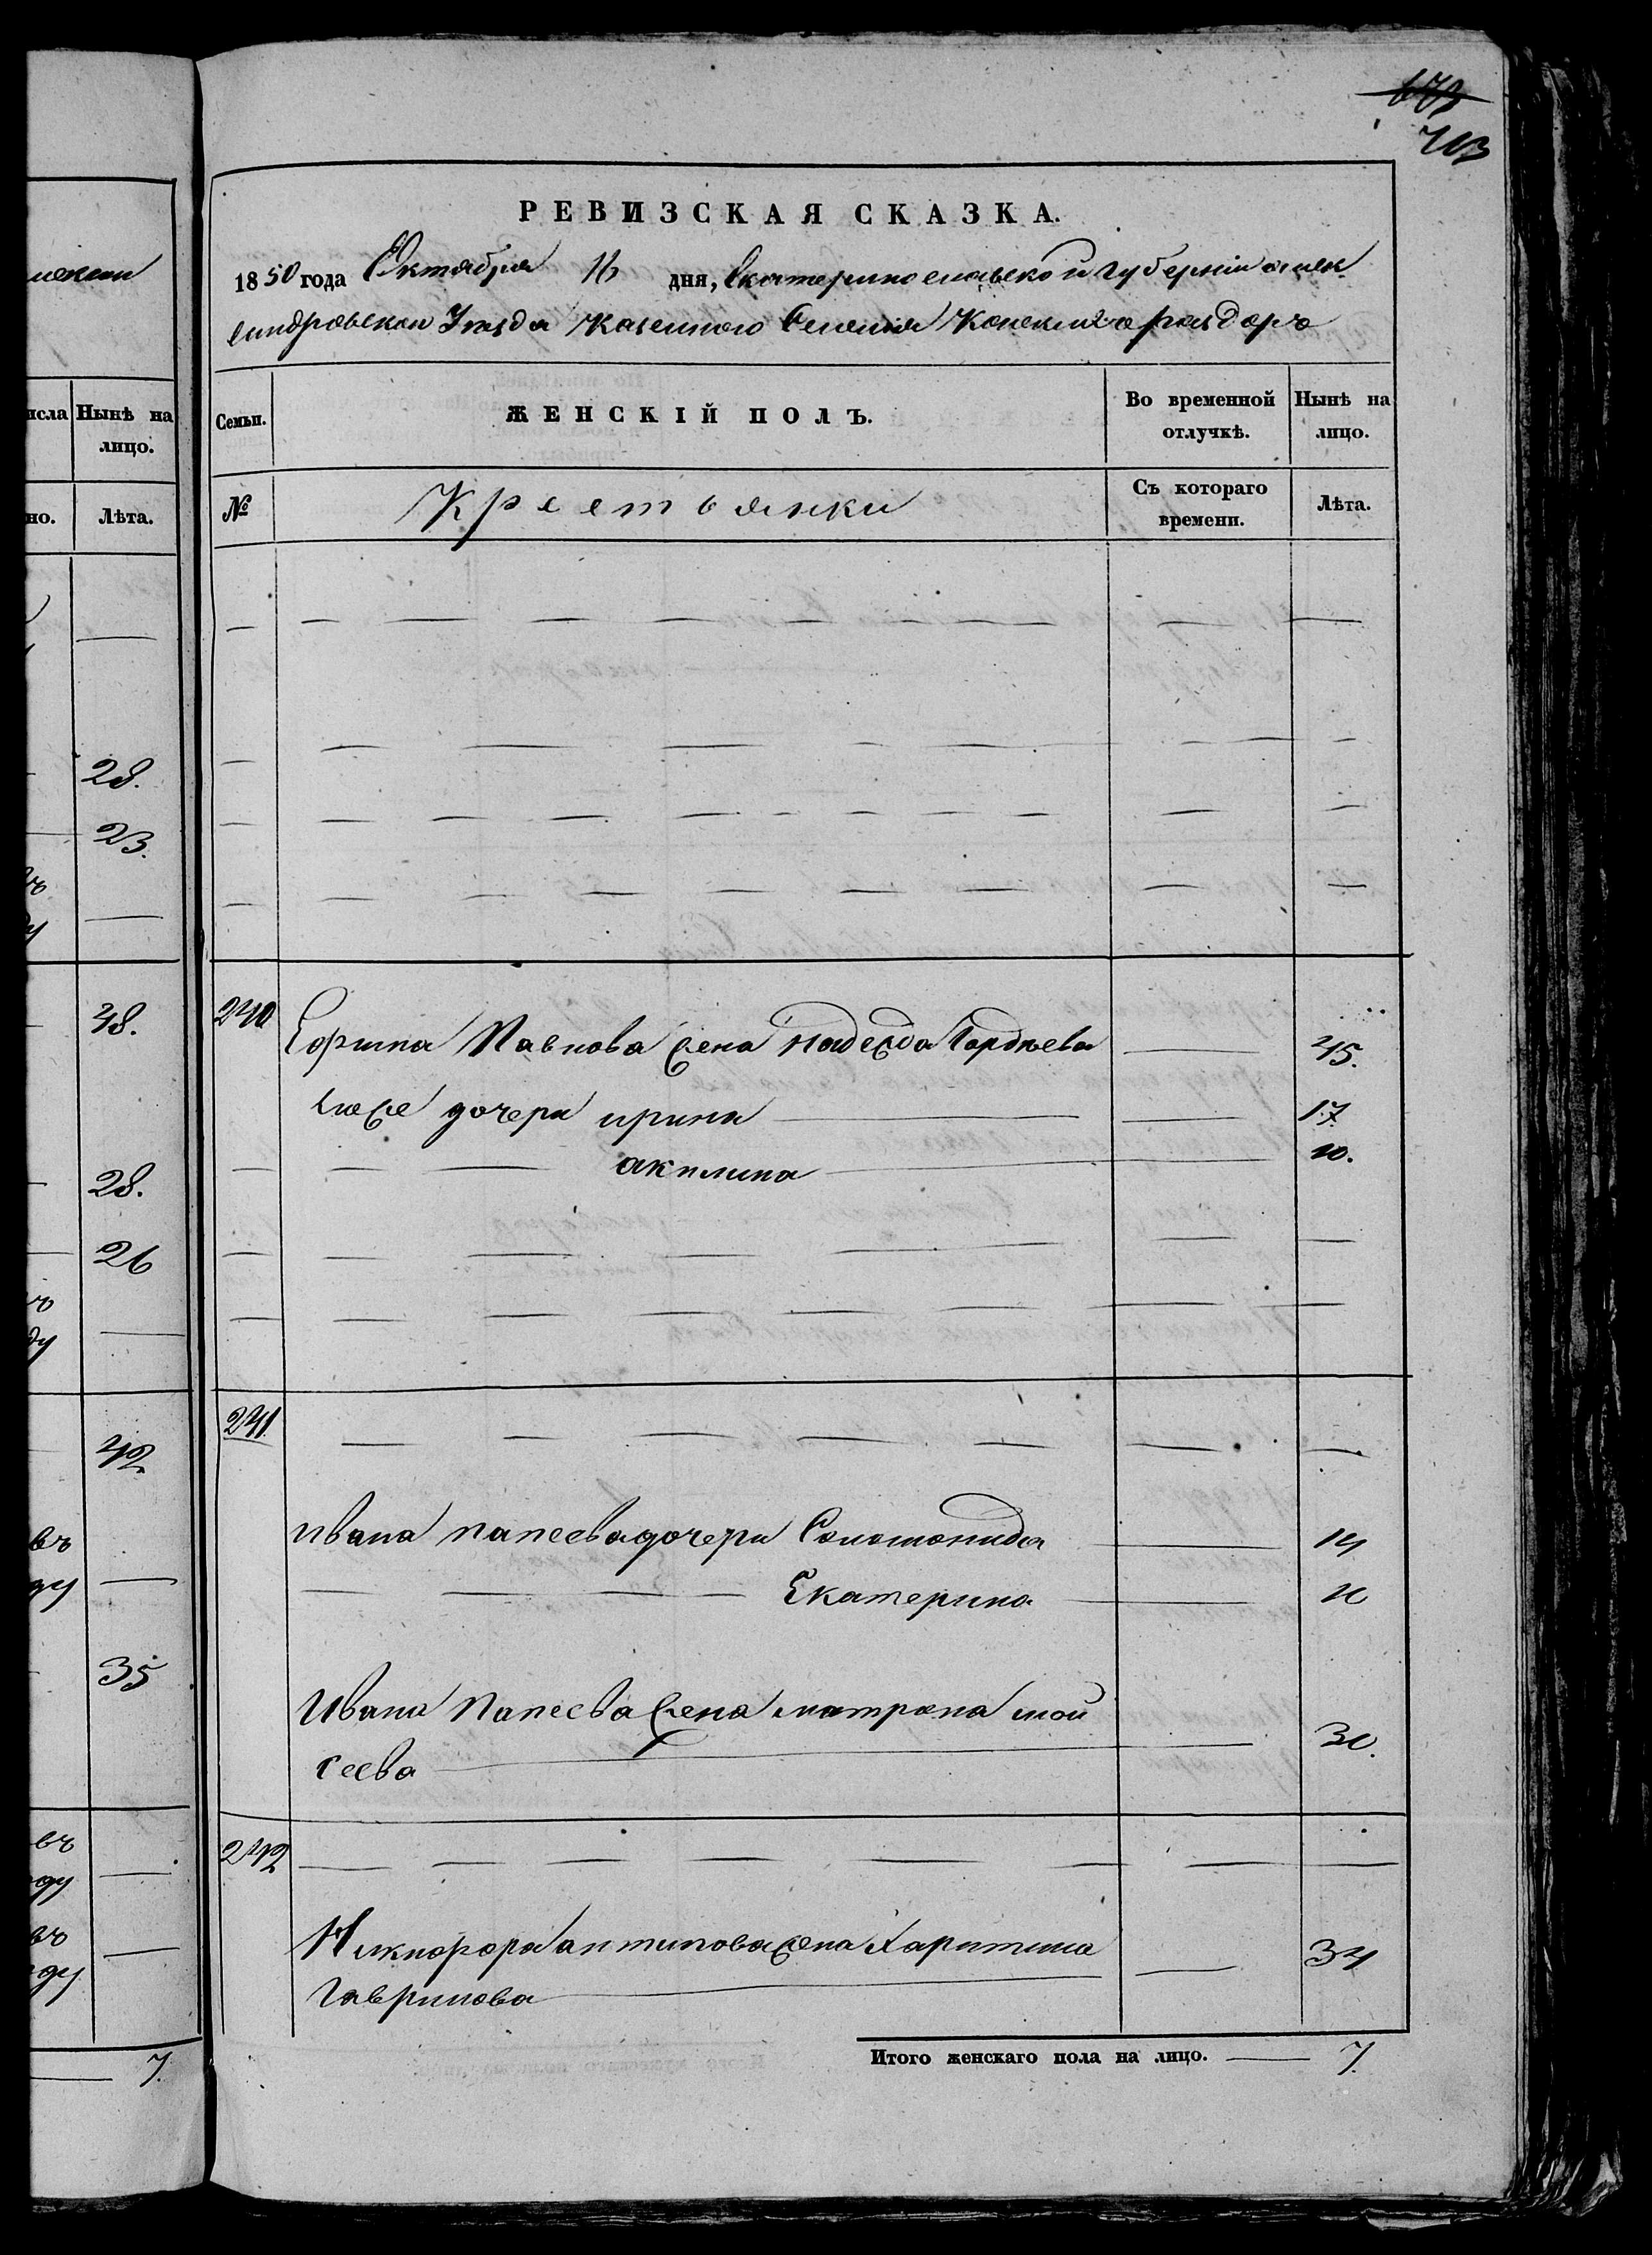 673
713
РЕВИЗСКАЯ СКАЗКА.
1850 года Октября 16 дня, Екатеринославской Губерніи Алек
сандровскаго Уѣзда Казеннаго Селенія Конскихъ раздоръ
Семьи.
ЖЕНСКІЙ ПОЛЪ.
Во временной отлучкѣ.
Нынѣ на лицо.
№
Крестьянки
Съ котораго времени.
Лѣта.
240
Ефима Павлова жена надежда Гордѣева 45.
ихже дочери ирина 17.
акилина 10.
241.
ивана папеева дочери Соломонида 14
Екатерина 10
Ивана Папеева жена матрона мои
сеева 30.
242
Никифора антипова жена Харитина
Гаврилова 34
Итого женскаго пола на лицо. 7.
Нынѣ на лицо.
но.
Лѣта.
28.
23.
48.
28.
26
42
въ
35
въ
оду
въ
7.